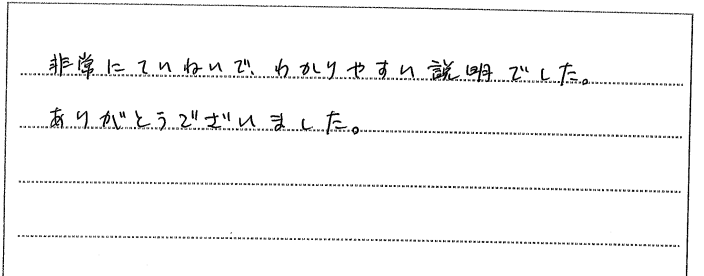 非常にていねいで、わかりやすい説明でした。
ありがとうございました。